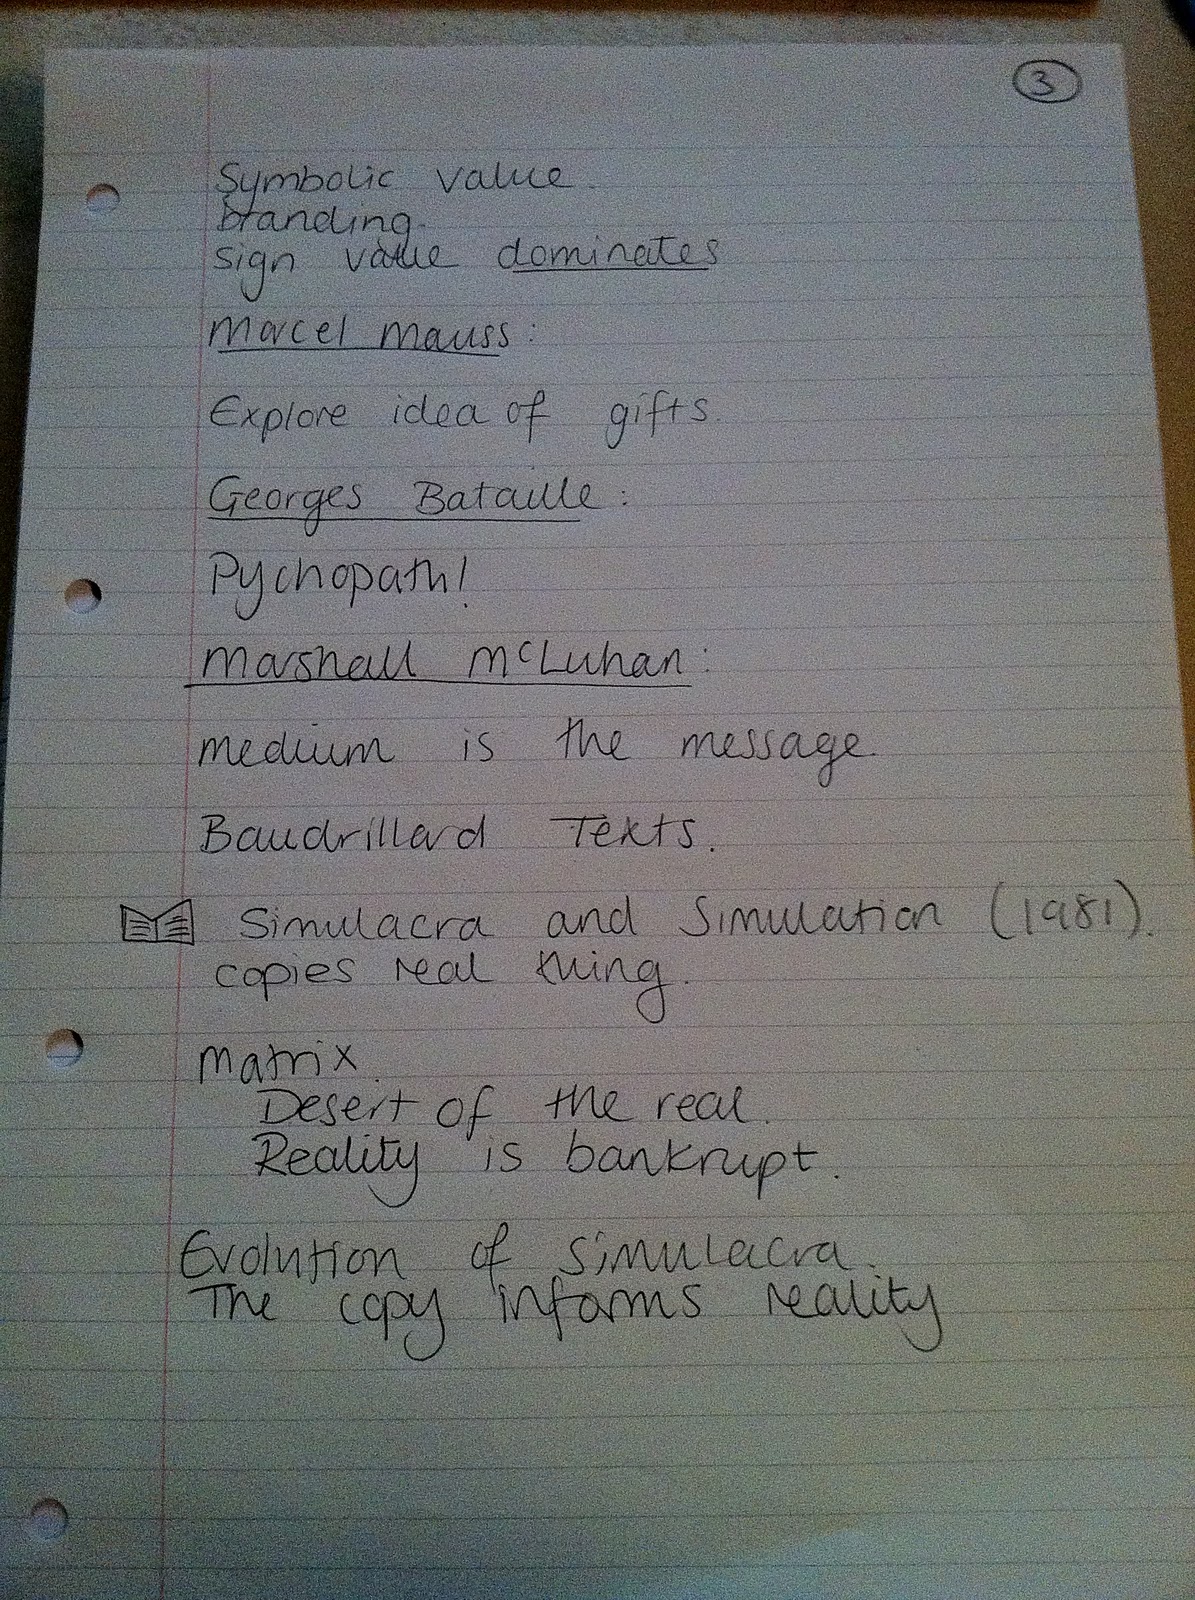 3
Symbolic value.
branding.
sign value dominates
Marcel Mauss:
Explore idea of gifts.
Georges Bataille:
Pychopath!
Marshall McLuhan:
medium is the message.
Baudrillard Texts.
Simulacra and Simulation (1981).
copies real thing.
Matrix.
Desert of the real.
Reality is bankrupt.
Evolution of simulacra.
The copy informs reality